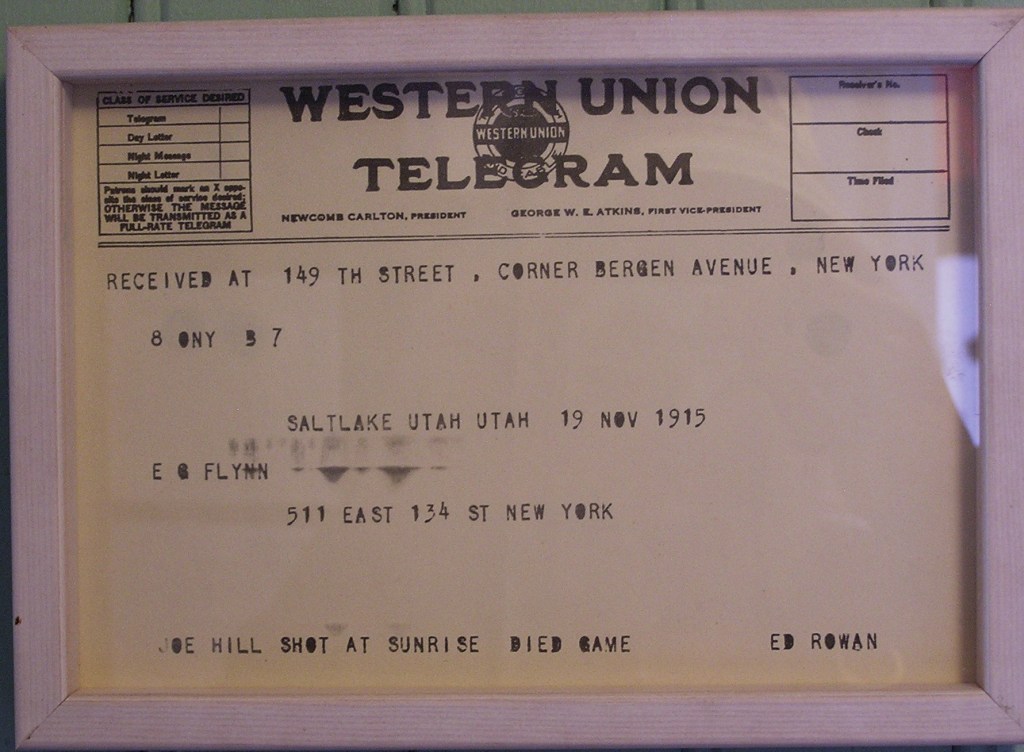 CLASS OF SERVICE DESIRED
Telegram
Day Letter
Night Message
Night Letter
Patrons should mark an X oppo-
site the class of service desired;
OTHERWISE THE MESSAGE
WILL BE TRANSMITTED AS A
FULL-RATE TELEGRAM
WESTERN UNION
WESTERN UNION
TELEGRAM
NEWCOMB CARLTON, PRESIDENT
GEORGE W. E. ATKINS, FIRST VICE-PRESIDENT
Receiver's No.
Check
Time Filed
RECEIVED AT 149 TH STREET , CORNER BERGEN AVENUE , NEW YORK
8 ONY B 7
SALTLAKE UTAH UTAH 19 NOV 1915
E G FLYNN
511 EAST 134 ST NEW YORK
JOE HILL SHOT AT SUNRISE DIED GAME ED ROWAN